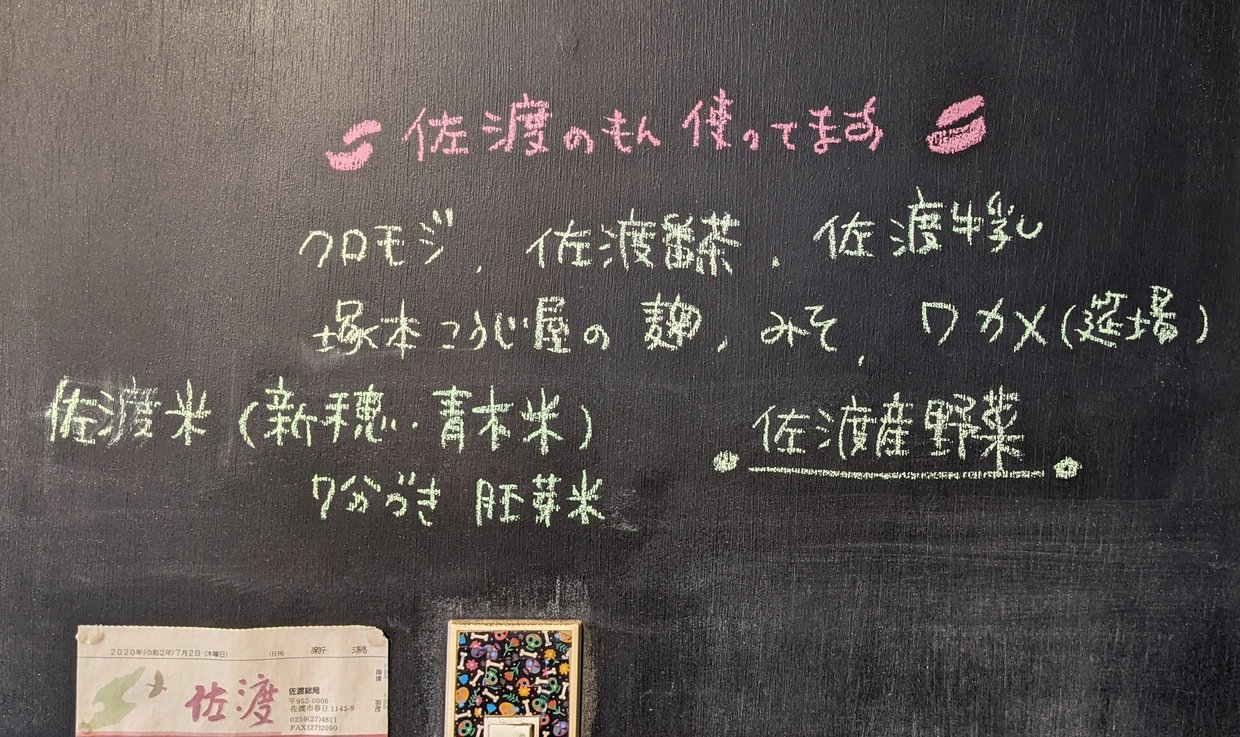 佐渡のもん使ってます
クロモジ、佐渡番茶、佐渡牛乳
塚本こうじ屋の麹、みそ、ワカメ(莚場)
佐渡米(新穂・青木米)
7分づき 胚芽米
佐渡産野菜
2020年(令和2年)7月2日(木曜日) (日刊) 新潟
佐渡
佐渡総局
〒952-0006
佐渡市春日1143-9
0259(27)4811
FAX(27)2090
両津
羽茂